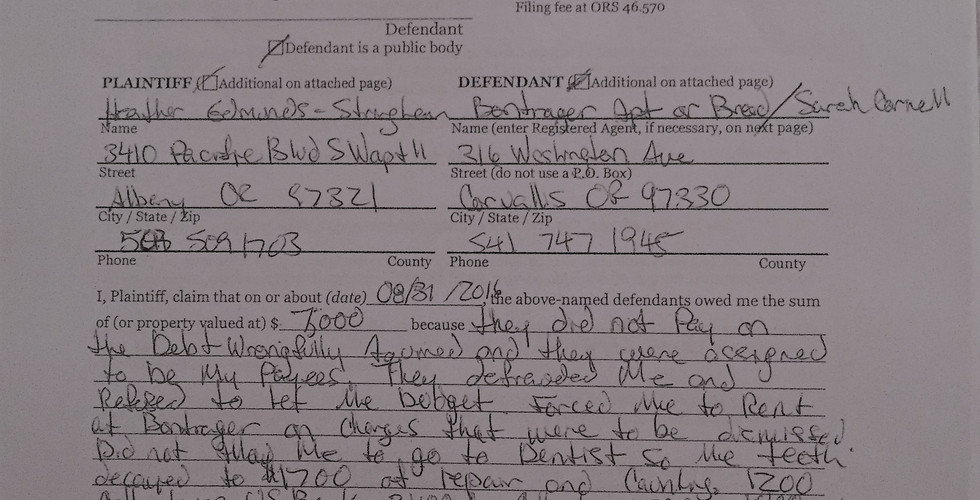 Filing fee at ORS 46.570
Defendant
Defendant is a public body
PLAINTIFF (Additional on attached page) DEFENDANT (Additional on attached page)
Heather Edmunds-Straghan Bontrager Apt or Bread/Sarah Cornell
Name Name (enter Registered Agent, if necessary, on next page)
3410 Pacific Blvd SW apt 11 316 Washington Ave
Street Street (do not use a P.O. Box)
Albany OR 97321 Corvallis OR 97330
City / State / Zip City / State / Zip
503 509 1703 541 747 1945
Phone County Phone County
I, Plaintiff, claim that on or about (date) 08/31/2016, the above-named defendants owed me the sum
of (or property valued at) $ 7000 because they did not Pay on
the Debt Wrongfully and they were assigned
to be My Payees. They defrauded Me and
Refesed to let Me bobget Forced Me to Rent
at Bontrager on Charges that were to be dismissed
Did not allow Me to go to Dentist so Me teeth
decayed to $1700 at repair and 1200